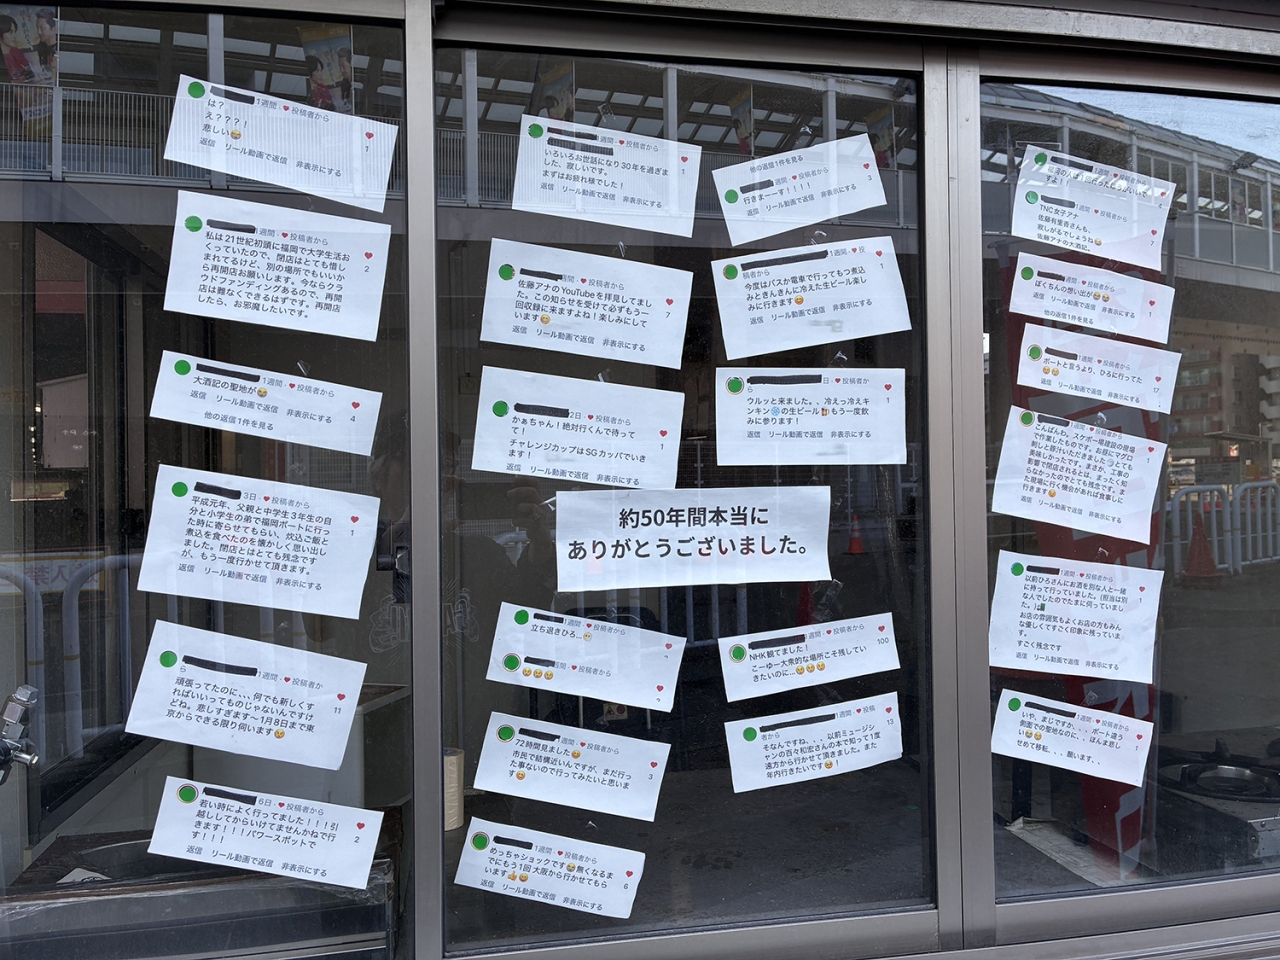 1週間・❤投稿者から
は?
え???!
悲しい😂
返信 リール動画で返信 非表示にする
1
1週間・❤投稿者から
私は21世紀初頭に福岡で大学生活お
くっていたので、閉店はとても惜し
まれてるけど、別の場所でもいいか
ら再開店お願いします。今ならクラ
ウドファンディングあるので、再開
店は難なくできるはずです。再開店
したら、お邪魔したいです。
2
1週間・❤投稿者から
大酒記の聖地が😭
返信 リール動画で返信 非表示にする
他の返信1件を見る
4
3日・❤投稿者から
平成元年、父親と中学生3年生の自
分と小学生の弟で福岡ボートに行っ
た時に寄らせてもらい、炊込ご飯と
煮込を食べたのを懐かしく思い出し
ました。閉店とはとても残念です
が、もう一度行かせて頂きます。
返信 リール動画で返信 非表示にする
1
1週間・❤投稿者か
ら
頑張ってたのに、、、何でも新しくす
ればいいってものじゃないんですけ
どね。悲しすぎます〜1月8日まで東
京からできる限り伺います😢
11
6日・❤投稿者から
若い時によく行ってました!!!引
越ししてからいけてませんかねで行
きます!!!パワースポットで
す!!!
返信 リール動画で返信 非表示にする
2
1週間・❤投稿者から
いろいろお世話になり30年を過ぎま
した、寂しいです。
まずはお疲れ様でした!
返信 リール動画で返信 非表示にする
1
週間・❤投稿者から
佐藤アナのYouTubeを拝見してまし
た。この知らせを受けて必ずもう一
回収録に来ますよね!楽しみにして
います😋
返信 リール動画で返信 非表示にする
7
2日・❤投稿者から
かぁちゃん!絶対行くんで待ってて
て!
チャレンジカップはSGカッパでいき
ます!
返信 リール動画で返信 非表示にする
1
他の返信1件を見る
週間・❤投稿者から
行きまーーす!!!!
返信 リール動画で返信 非表示にする
3
1週間・❤投
稿者から
今度はバスか電車で行ってもつ煮込
みときんきんに冷えた生ビール楽し
みに行きます😋
返信 リール動画で返信 非表示にする
1
日・❤投稿者か
ら
ウルッと来ました。、冷えっ冷えキ
ンキン❄の生ビール🍺もう一度飲
みに参ります!
返信 リール動画で返信 非表示にする
1
約50年間本当に
ありがとうございました。
1週間・❤投稿者から
立ち退きひろ...😬
週間・❤投稿者から
😢😢😢
週間・❤投稿者から
72時間見ました😊
市民で結構近いんですが、まだ行っ
た事ないので行ってみたいと思いま
す😋
3
1週間・❤投稿者から
めっちゃショックです😭無くなるま
でにもう1回 大阪から行かせてもら
います👍😄
返信 リール動画で返信 非表示にする
6
1週間・❤投稿者から
NHK観てました!
こーゆー大衆的な場所こそ残してい
きたいのに...😢😢😢
100
1週間・❤投稿
者から
そなんですね、、、以前ミュージシ
ャンの百々和宏さんの本で知って1度
遠方から行かせて頂きました。また
年内行きたいです🥹!
13
1週間・❤投稿者から
すよ!
週間・❤投稿者から
TNC女子アナ
佐藤有里香さんも、
寂しがるでしょうね😂
佐藤アナの大酒記。
7
週間・❤投稿者から
ぼくちんの想い出が😭😭
返信 リール動画で返信 非表示にする
他の返信1件を見る
1
1週間・❤投稿者から
ボートと言うより、ひろに行ってた
😢😢
返信 リール動画で返信 非表示にする
17
1週間・❤投稿者から
こんばんわ。スケボー場建設の現場
で作業したものです。お昼にマグロ
刺しと豚汁いただきました🍚とても
美味しかったです。まさか、工事の
影響で閉店されるとは、まったく知
らなかったのでとても残念です。ま
た現場に行く機会があれば食事しに
行きます😢
1
1週間・❤投稿者から
以前ひろさんにお酒を別な人と一緒
に持って行っていました。(担当は別
な人でしたのでたまに伺っていまし
た。)
お店の雰囲気もよくお店の方もみん
な優しくてすごく印象に残っていま
す。
すごく残念です
返信 リール動画で返信 非表示にする
1
1週間・❤投稿者から
いや、まじですか、、、ボート違う
側面での聖地なのに、、ほんま悲し
い😢😢
せめて移転、、、願います、、
1